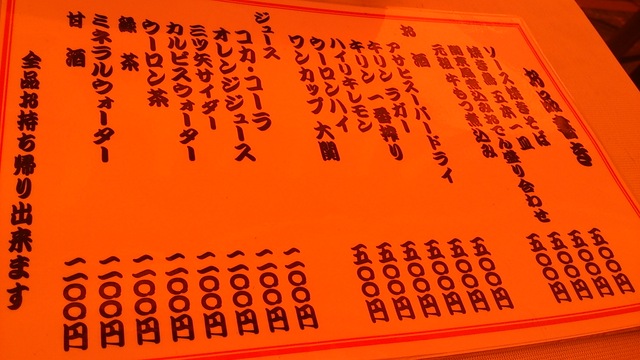 お品書き
ソース焼きそば
焼き鳥 五本一皿
関東風煮込みおでん盛り合わせ
元祖 牛もつ煮込み
五〇〇円
五〇〇円
五〇〇円
五〇〇円
お酒
アサヒスーパードライ
キリンラガー
キリン一番搾り
ハイリキレモン
ウーロンハイ
ワンカップ大関
五〇〇円
五〇〇円
五〇〇円
五〇〇円
五〇〇円
五〇〇円
ジュース
コカ・コーラ
オレンジジュース
三ツ矢サイダー
カルピスウォーター
ウーロン茶
緑茶
ミネラルウォーター
甘酒
二〇〇円
二〇〇円
二〇〇円
二〇〇円
二〇〇円
二〇〇円
二〇〇円
二〇〇円
全品お持ち帰り出来ます